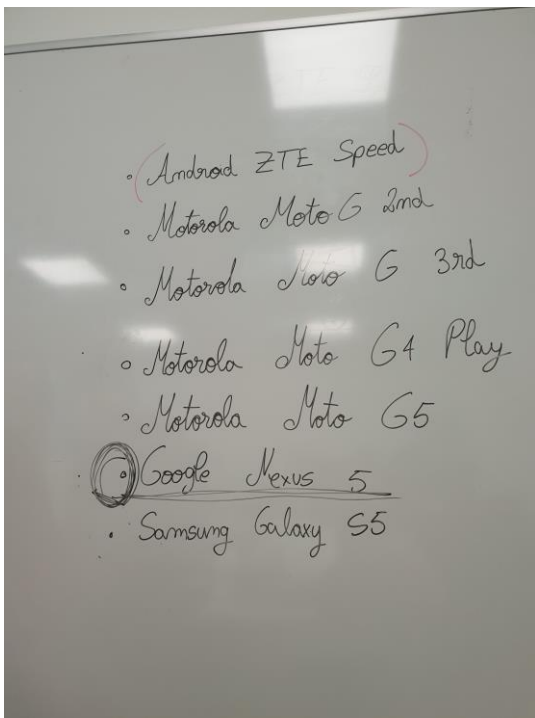 (Android ZTE Speed)
Motorola Moto G 2nd
Motorola Moto G 3rd
Motorola Moto G4 Play
Motorola Moto G5
Google Nexus 5
Samsung Galaxy S5